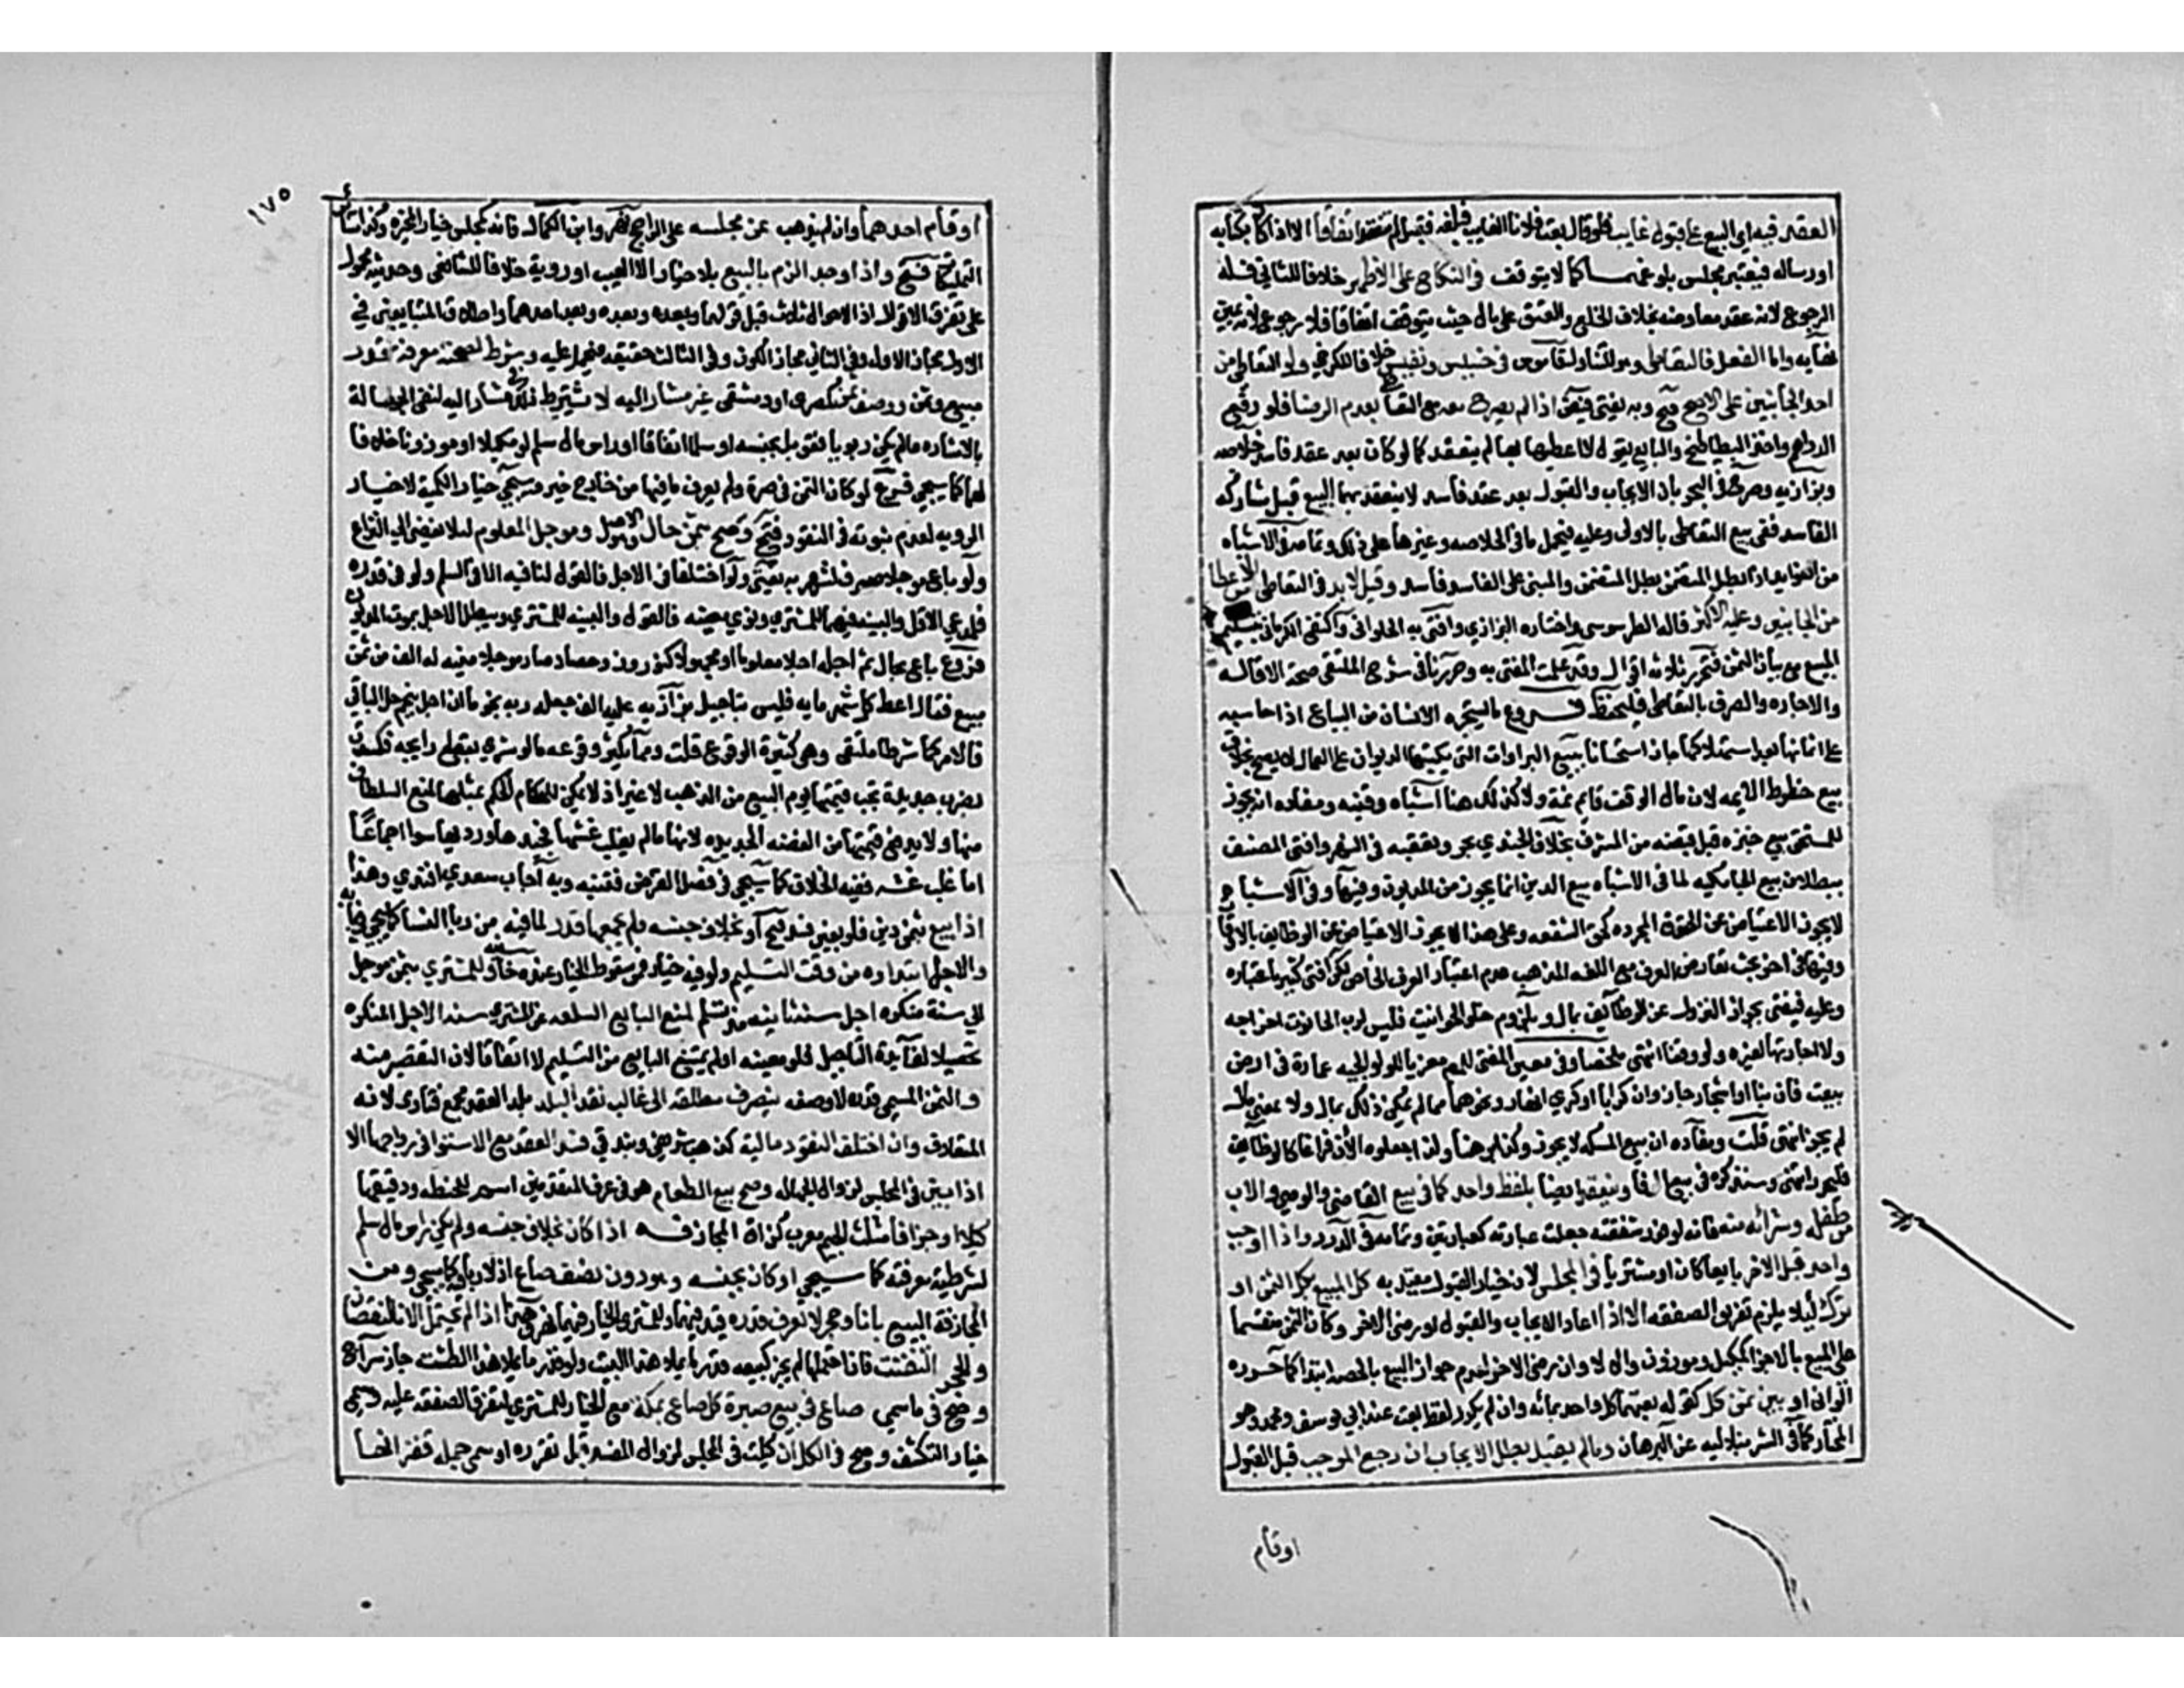 العقد فيه اي البيع علي قبول غايب فلو قال بعت فلانا الغايب فبلغه فقبل لم ينعقد اتفاقا الا اذا كان بكتابه
او رساله فيعتبر مجلس بلوغها كما لا يتوقف في النكاح على الاظهر خلافا للثاني فله
الرجوع لانه عقد معاوضه بخلاف الخلع والعتق على مال حيث يتوقف اتفاقا فلا رجوع لانه يمين
نهايه واما الفعل فالتعاطي وهو التناول قاموس في خسيس ونفيس خلافا للكرخي ولو التعاطي من
احد الجانبين على الاصح فتح وبه يفتي فيض اذا لم يصرح معه مع التعاطي بعدم الرضا فلو دفع
الدراهم واخذ البطاطيخ والبايع يقول لا اعطيها بها لم ينعقد كما لو كان بعد عقد فاسد خلاصه
وبزازيه وصرح في البحر بان الايجاب والقبول بعد عقد فاسد لا ينعقد بهما البيع قبل متاركه
الفاسد ففي بيع التعاطي بالاولى وعليه فيحمل ما في الخلاصه وغيرها على ذلك وتمامه في الاشباه
من الفوايد اذا بطل المتضمن بطل المتضمن والمبني على الفاسد فاسد وقيل لا بد في التعاطي من الاعطا
من الجانبين وعليه الاكثر قاله الطرسوسي واختاره البزازي وافتى به الحلواني واكتفى الكرماني بتسليم
المبيع مع بيان الثمن فتحرر ثلاثه اقوال وقد علمت المفتى به وحررنا في شرح الملتقى صحة الاقاله
والاجاره والصرف بالتعاطي فليحفظ فروع ما يستجره الانسان من البياع اذا حاسبه
على اثمانها بعد استهلاكها جاز استحسانا بيع البراوات التي يكتبها الديوان على العمال لا يصح بخلاف
بيع حظوظ الايمه لان مال الوقف قايم ثمة ولا كذلك هنا اشباه وقنيه ومفاده انه يجوز
للمستحق بيع خبزه قبل قبضه من المشرف بخلاف الجندي بحر وتعقبه في النهر وافتى المصنف
ببطلان بيع الجامكيه لما في الاشباه بيع الدين انما يجوز من المديون وفيها وفي الاشباه
لا يجوز الاعتياض عن الحقوق المجرده كحق الشفعه وعلى هذا لا يجوز الاعتياض عن الوظايف بالاوقاف
وفيها في اخر بحث تعارض العرف مع اللغه المذهب عدم اعتبار العرف الخاص لكن افتى كثير باعتباره
وعليه فيفتى بجواز النزول عن الوظايف بمال وبلزوم خلو الحوانيت فليس لرب الحانوت اخراجه
ولا اجارتها لغيره ولو وقفا انتهى ملخصا وفي معين المفتي للمص معزيا للولوالجيه عمارة في ارض
بيعت فان بنا او اشجارا جاز وان كرابا او كري انهار ونحوهما مما لم يكن ذلك بمال ولا بمعنى مال
لم يجز انتهى قلت ومفاده ان بيع المسكه لا يجوز وكذا رهنها ولذا جعلوه الان فراغا كالوظايف
فليحرر انتهى وسنذكره في بيع الوفا وينعقد ايضا بلفظ واحد كما في بيع القاضي والوصي والاب
من طفله وشرائه منه فانه لوفور شفقته جعلت عبارته كعبارتين وتمامه في الدرر واذا اوجب
واحد قبل الاخر بايعا كان او مشتريا في المجلس لان خيار القبول مقيد به كل المبيع بكل الثمن او
ترك ليلا يلزم تفريق الصفقه الا اذا اعاد الايجاب والقبول او رضي الاخر وكان الثمن منقسما
على المبيع بالاجزا كمكيل وموزون والا لا وان رضي الاخر لعدم جواز البيع بالحصه ابتدا كما حرره
الواني او بين ثمن كل كقوله بعتهما كل واحد بمائه وان لم يكرر لفظ بعت عند ابي يوسف ومحمد وهو
المختار كما في الشرنبلاليه عن البرهان وما لم يقبل بطل الايجاب ان رجع الموجب قبل القبول
اوقام
١٧٥
او قام احدهما وان لم يذهب عن مجلسه على الراجح نهر وابن الكمال فانه كمجلس خيار المخيره وكذا سائر
التمليكات فتح واذا وجد الزم بالبيع بلا خيار الا لعيب او روية خلافا للشافعي وحديثه محمول
على تفرق الاقوال اذ الاحوال ثلاث قبل قولهما وبعده وبعد احدهما واطلاق المتبايعين في
الاول مجاز الاول وفي الثاني مجاز الكون وفي الثالث حقيقه فيحمل عليه وشرط لصحته معرفة قدر
مبيع وثمن ووصف ثمن كمصري او دمشقي غير مشار اليه لا يشترط ذلك في مشار اليه لنفي الجهالة
بالاشاره ما لم يكن ربويا قوبل بجنسه او سلما اتفاقا او راس مال سلم لو مكيلا او موزونا خلافا
لهما كما سيجي فرع لو كان الثمن في صرة ولم يعرف ما فيها من خارج خير وسمي خيار الكمية لا خيار
الرويه لعدم ثبوته في النقود فتح وصح بثمن حال وهو الاصل وموجل الى معلوم ليلا يفضي الى النزاع
ولو باع موجلا صرف لشهر به يفتى ولو اختلفا في الاجل فالقول لنافيه الا في السلم ولو في قدره
فلمدعي الاقل والبينه فيهما للمشتري ولو في مضيه فالقول والبينه للمشتري ويبطل الاجل بموت المديون
فروع باع بحال ثم اجله اجلا معلوما او مجهولا كنيروز وحصاد صار موجلا منيه له الف من ثمن
مبيع فقال اعط كل شهر مايه فليس بتاجيل بزازيه عليه الف جعله ربه نجوما ان اخل بنجم حل الباقي
فالامر كما شرطا ملتقى وهي كثيرة الوقوع قلت ومما يكثر وقوعه ما لو شرى بقطع رايجه فكسدت
بضرب جديدة تجب قيمتها يوم البيع من الذهب لا غير اذ لا يمكن للحكام الحكم بمثلها لمنع السلطان
منها ولا يدفع قيمتها من الفضه الجديده لانها ما لم يغلب غشها فجيدها ورديها سوا اجماعا
اما غلب غشه ففيه الخلاف كما سيجي في فصل القرض فتنبه وبه اجاب سعدي افندي وهذا
اذا بيع بثمن دين فلو بعين فسد فتح او بخلاف جنسه ولم يجمعهما قدر لما فيه من ربا النسا كما سيجي في بابه
والاجل ابتداوه من وقت التسليم ولو فيه خيار فمن سقوط الخيار عنده خانيه وللمشتري بثمن موجل
الى سنة منكره اجل سنة ثانيه مذ تسلم لمنع البايع السلعه عن المشتري سنة الاجل المنكره
تحصيلا لفايدة التاجيل فلو معينه او لم يمتنع البايع من التسليم لا اتفاقا لان التقصير منه
والثمن المسمى قدره لا وصفه ينصرف مطلقه الى غالب نقد البلد بلد العقد مجمع فتاوى لانه
المتعارف وان اختلف النقود مالية كذهب شريفي وبندقي فسد العقد مع الاستوا في رواجها الا
اذا بين في المجلس لزوال الجهاله وصح بيع الطعام هو في عرف المتقدمين اسم للحنطه ودقيقها
كيلا وجزافا مثلث الجيم معرب كزاف المجازفه اذا كان بخلاف جنسه ولم يكن راس مال سلم
لشرطية معرفته كما سيجي او كان بجنسه وهو دون نصف صاع اذ لا ربا فيه كما سيجي ومن
المجازفة البيع باناء وحجر لا يعرف قدره قيد فيهما وللمشتري الخيار فيهما نهر وهذا اذا لم يحتمل الانا النقصان
والحجر التفتت فان احتملهما لم يجز كبيعه قدر ما يملا هذا البيت ولو قدر ما يملا هذا الطشت جاز سراج
وصح في ما سمي صاع في بيع صبرة كل صاع بكذا مع الخيار للمشتري لتفرق الصفقه عليه ويسمى
خيار التكشف وصح في الكل ان كيلت في المجلس لزوال المفسد قبل تقرره او سمى جملة قفزانها